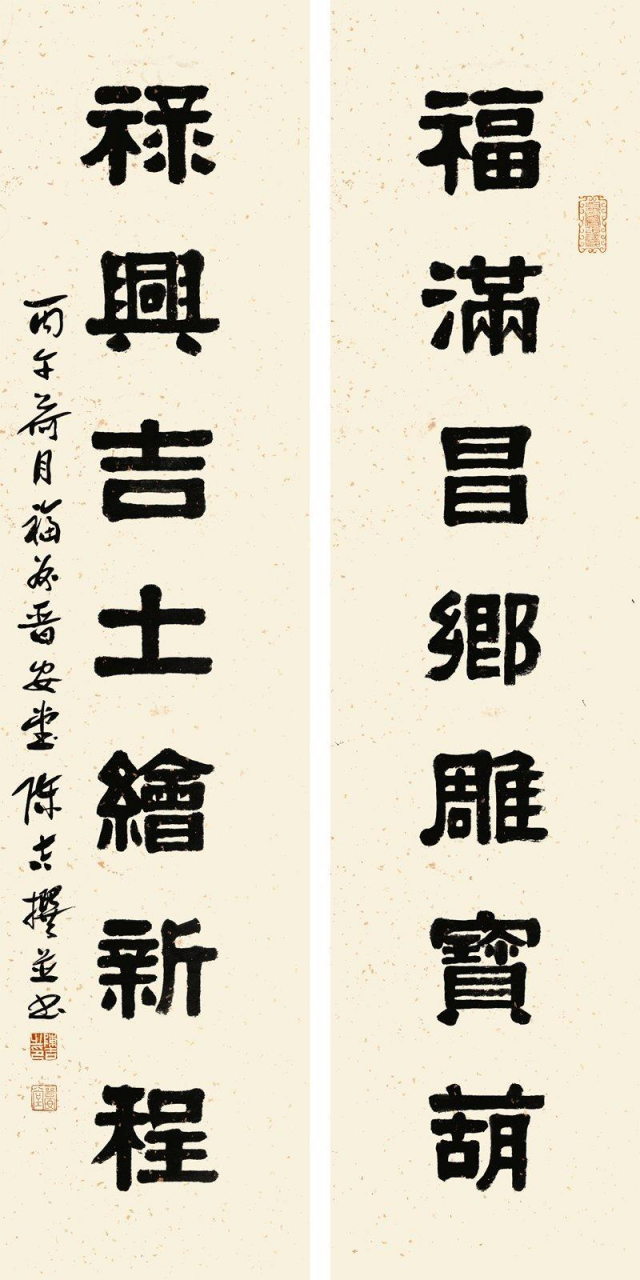 福滿昌鄉雕寶葫
祿興吉士繪新程
丙午荷月福安晉安堂陳吉撰並書